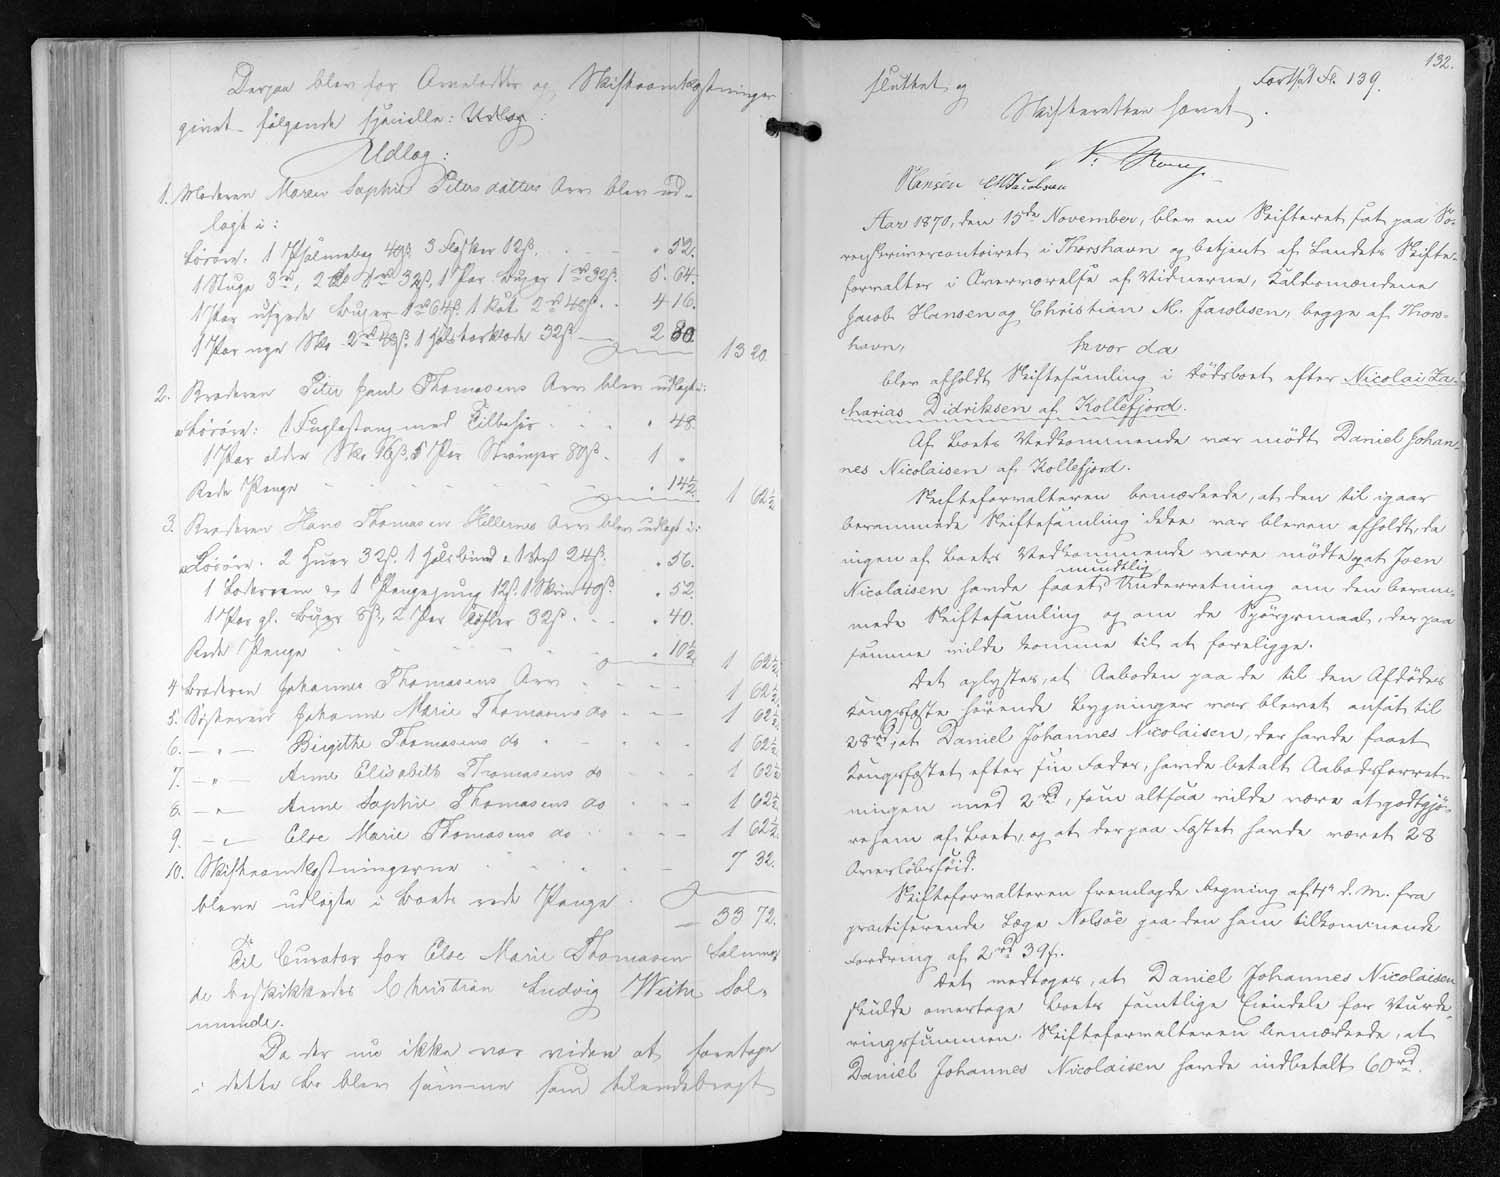 Derpaa blev for Arvelodder og Skifteomkostninger
givet følgende specielle: Udlæg:
Udlæg:
1. Moderen Maren Sophie Peters datters Arv blev ud-
lagt i:
Løsøre. 1 Psalmebog 48ß 3 Flasker 12ß . . " 52.
1 Stuge 3rd, 2 do 1rd 32ß, 1 Par Buxer 1rd 32ß. 5. 64.
1 Par ufyede Buxer 1rd 64ß. 1 Kot 2rd 48ß. . 4 16.
1 Par nye Sko 2rd 48ß. 1 Halstørklæde 32ß 2 80.
13 20.
2. Broderen Peter Paul Thomasens Arv blev udlagt i:
Løsøre: 1 Fuglestang med Tilbehør . . . " 48.
1 Par ældre Sko 16ß, 5 Par Strømper 80ß. 1 "
Rede Penge . . . " 14½
1 62½
3. Broderen Hans Thomasen Hellernes Arv blev udlagt i:
Løsøre. 2 Huer 32ß. 1 Halsbind, 1 Vest 24ß. " 56.
1 & 1 Pengepung 12ß. 1 Skrin 40ß. " 52.
1 Par gl. Buxer 8ß, 2 Par Tøfler 32ß . . " 40.
Rede Penge . . . " 10½
1 62½
4 Broderen Johannes Thomasens Arv . . . 1 62½
5. Søsteren Johanne Marie Thomasens do . . 1 62½
6. — " — Birgithe Thomasens do . . . 1 62½
7. — " — Anne Elisabeth Thomasens do . . 1 62½
8. — " — Anne Sophie Thomasens do . . . 1 62½
9. — " — Else Marie Thomasens do . . . 1 62½
10. Skifteomkostningerne . . . 7 32.
bleve udlagte i Boets rede Penge.
33 72.
Til Curator for Else Marie Thomasen
de beskikkedes Christian Ludvig Weihe Sol-
munde.
Da der nu ikke var videre at foretage
i dette Bo blev samme som tilendebragt
132.
sluttet og Fortsat Fl. 139.
Skifteretten hævet.
Hansen CMJacobsen
Aar 1870, den 15de November, blev en Skifteret sat paa So-
renskrivercontoiret i Thorshavn og betjent af Landets Skifte-
forvalter i Overværelse af Vidnerne, Kaldsmændene
Jacob Hansen og Christian M. Jacobsen, begge af Thors-
havn,
hvor da
blev afholdt Skiftesamling i Dødsboet efter Nicolai Za-
charias Didriksen af Kollefjord.
Af Boets Vedkommende var mødt Daniel Johan-
nes Nicolaisen af Kollefjord.
Skifteforvalteren bemærkede, at den til igaar
berammede Skiftesamling ikke var bleven afholdt, da
ingen af Boets Vedkommende vare mødte, at Joen
Nicolaisen havde faaet mundtlig Underretning om den beram-
mede Skiftesamling og om de Spørgsmaal, der paa
samme vilde komme til at foreligge.
Det oplystes, at Aaboden paa de til den Afdødes
Kongsfæste hørende Bygninger var blevet ansat til
28rd, at Daniel Johannes Nicolaisen, der havde faaet
Kongsfæstet efter sin Fader, havde betalt Aabodsforret-
ningen med 2rd, som altsaa vilde være at godtgjø-
res ham af Boet, og at der paa Fæstet havde været 28
Overløbsfoid.
Skifteforvalteren fremlagde Regning af 4' d. M. fra
practiserende Læge Nolsøe paa den ham tilkommende
Fordring af 2rd 39ß.
Det vedtoges, at Daniel Johannes Nicolaisen
skulde overtage Boets samtlige Eiendele for Vurde-
ringssummen. Skifteforvalteren bemærkede, at
Daniel Johannes Nicolaisen havde indbetalt 60rd.